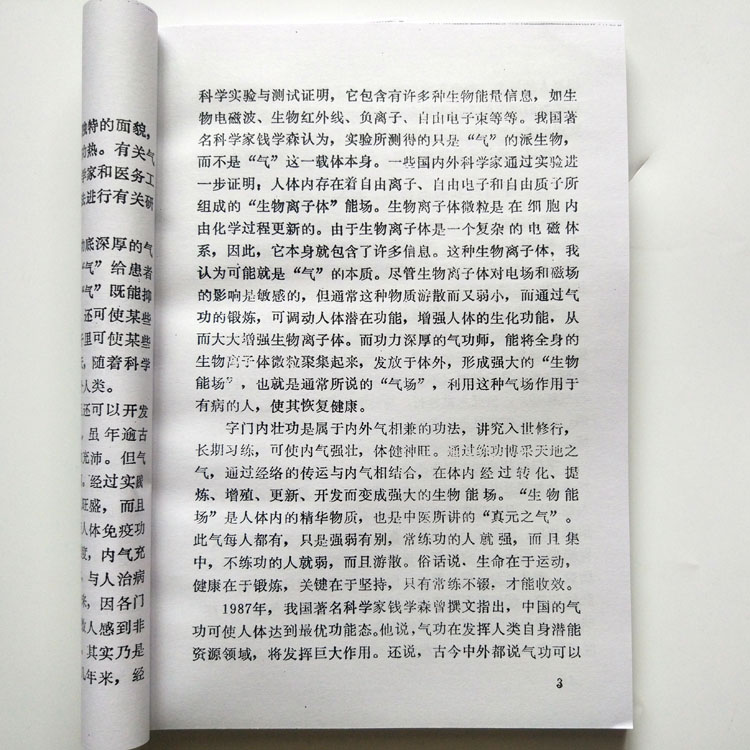 独特的面貌，
功热。有关气
学家和医务工
法进行有关研
功底深厚的气
“气”给患者
“气”既能抑
还可使某些
手里可使某些
，随着科学
人类。
还可以开发
，虽年逾古
充沛。但气
。经过实践
旺盛，而且
人体免疫功
度，内气充
，与人治病
来，因各门
数人感到非
，其实乃是
几年来，经
科学实验与测试证明，它包含有许多种生物能量信息，如生
物电磁波、生物红外线、负离子、自由电子束等等。我国著
名科学家钱学森认为，实验所测得的只是“气”的派生物，
而不是“气”这一载体本身。一些国内外科学家通过实验进
一步证明；人体内存在着自由离子、自由电子和自由质子所
组成的“生物离子体”能场。生物离子体微粒是在细胞内
由化学过程更新的。由于生物离子体是一个复杂的电磁体
系，因此，它本身就包含了许多信息。这种生物离子体，我
认为可能就是“气”的本质。尽管生物离子体对电场和磁场
的影响是敏感的，但通常这种物质游散而又弱小，而通过气
功的锻炼，可调动人体潜在功能，增强人体的生化功能，从
而大大增强生物离子体。而功力深厚的气功师，能将全身的
生物离子体微粒聚集起来，发放于体外，形成强大的“生物
能场”，也就是通常所说的“气场”，利用这种气场作用于
有病的人，使其恢复健康。
字门内壮功是属于内外气相兼的功法，讲究入世修行，
长期习练，可使内气强壮，体健神旺。通过练功博采天地之
气，通过经络的传运与内气相结合，在体内经过转化、提
炼、增殖、更新、开发而变成强大的生物能场。“生物能
场”是人体内的精华物质，也是中医所讲的“真元之气”。
此气每人都有，只是强弱有别，常练功的人就强，而且集
中，不练功的人就弱，而且游散。俗话说、生命在于运动，
健康在于锻炼，关键在于坚持，只有常练不辍，才能收效。
1987年，我国著名科学家钱学森曾撰文指出，中国的气
功可使人体达到最优功能态。他说，气功在发挥人类自身潜能
资源领域，将发挥巨大作用。还说，古今中外都说气功可以
3